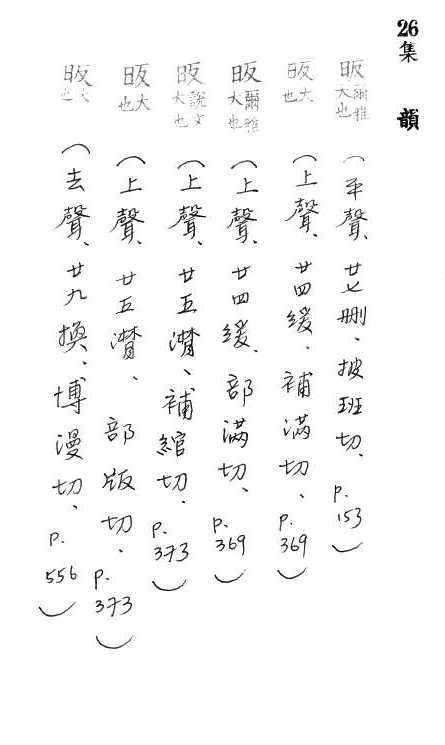 26集韻
昄爾雅大也(平聲、廿七刪、披班切、P.153)
昄大也(上聲、廿四緩、補滿切、P.369)
昄爾雅大也(上聲、廿四緩、部滿切、P.369)
昄說文大也(上聲、廿五潸、補綰切、P.373)
昄大也(上聲、廿五潸、部版切、P.373)
昄大也(去聲、廿九換、博漫切、P.556)